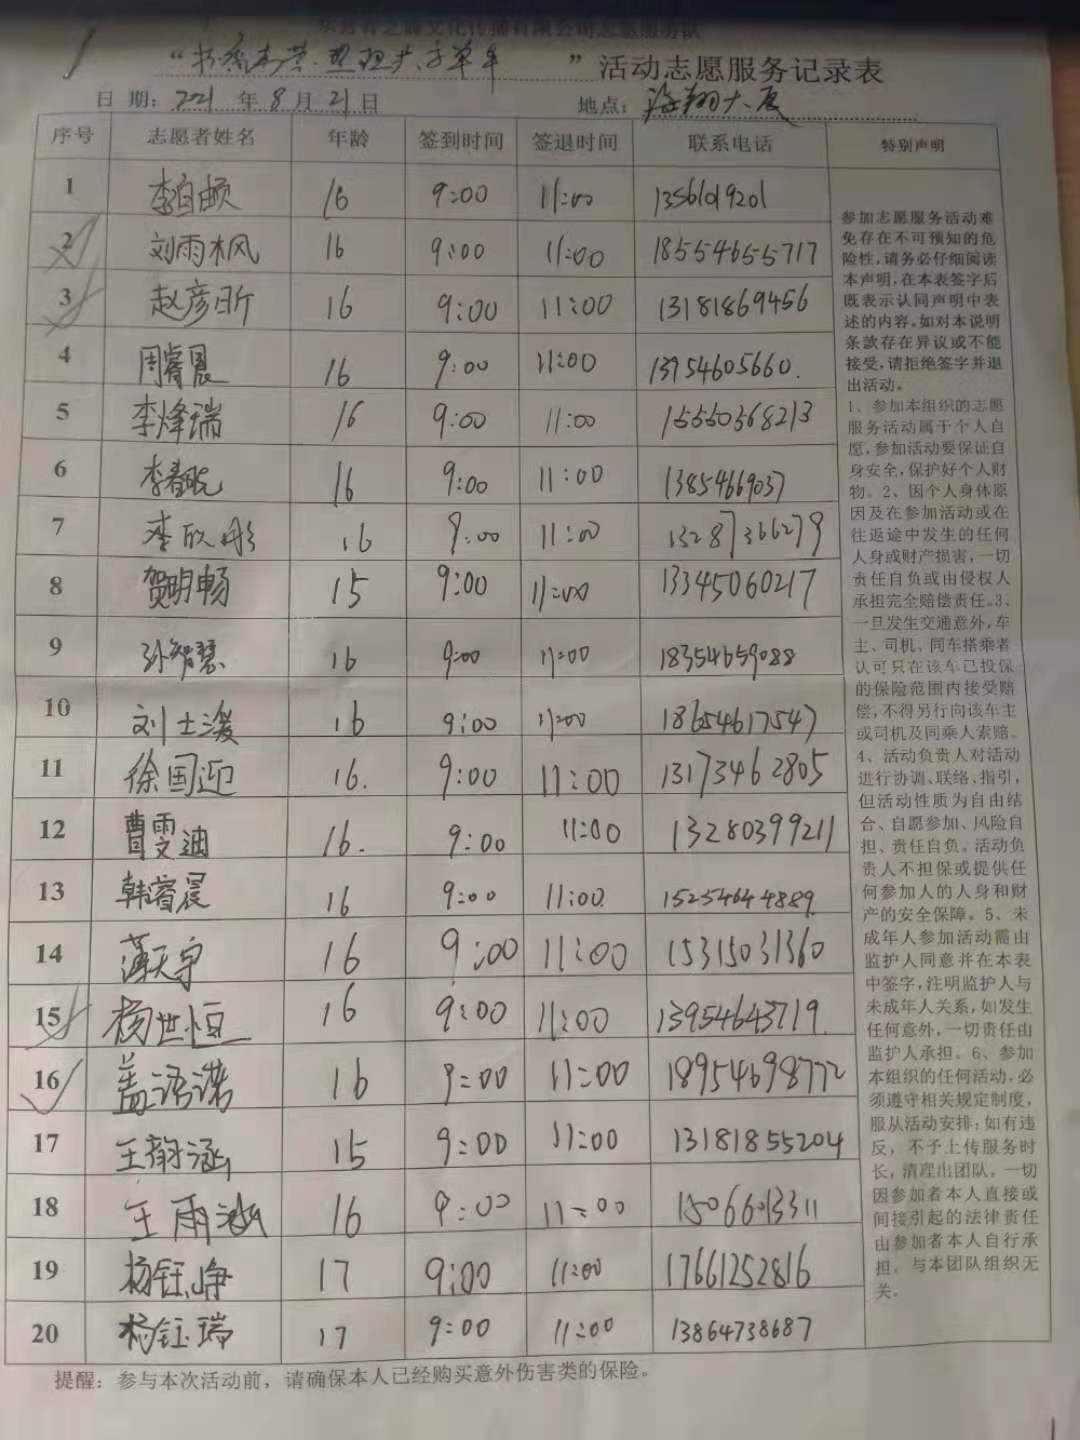 活动志愿服务记录表
日 期：2021 年 8 月 21 日 地点：海翔大厦
序号 志愿者姓名 年龄 签到时间 签退时间 联系电话 特别声明
1 16 9:00 11:00
2 刘雨枫 16 9:00 11:00 18554655717
3 赵彦昕 16 9:00 11:00 13181869456
4 周睿晨 16 9:00 11:00 13754605660.
5 李烽瑞 16 9:00 11:00 15550368213
6 16 9:00 11:00 13854669037
7 李欣彤 16 9:00 11:00 13287366279
8 贺明畅 15 9:00 11:00 13345060217
9 孙智慧 16 9:00 11:00 18354659088
10 刘士湲 16 9:00 11:00 18654617547
11 徐国迎 16. 9:00 11:00 13173462805
12 曹雯迪 16. 9:00 11:00 13280399211
13 韩睿晨 16 9:00 11:00 15254644889
14 薄天宇 16 9:00 11:00 15315031360
15 杨世恒 16 9:00 11:00 13954643719
16 盖语诺 16 9:00 11:00 18954698772
17 王韵涵 15 9:00 11:00 13181855204
18 王雨涵 16 9:00 11:00 15066013311
19 杨钰峥 17 9:00 11:00 17661252816
20 杨钰瑞 17 9:00 11:00 13864738687
参加志愿服务活动难
免存在不可预知的危
险性，请务必仔细阅读
本声明，在本表签字后
既表示认同声明中表
述的内容。如对本说明
条款存在异议或不能
接受，请拒绝签字并退
出活动。
1、参加本组织的志愿
服务活动属于个人自
愿，参加活动要保证自
身安全，保护好个人财
物。2、因个人身体原
因及在参加活动或在
往返途中发生的任何
人身或财产损害，一切
责任自负或由侵权人
承担完全赔偿责任。3、
一旦发生交通意外，车
主、司机、同车搭乘者
认可只在该车已投保
的保险范围内接受赔
偿，不得另行向该车主
或司机及同乘人索赔。
4、活动负责人对活动
进行协调、联络、指引，
但活动性质为自由结
合、自愿参加、风险自
担、责任自负。活动负
责人不担保或提供任
何参加人的人身和财
产的安全保障。5、未
成年人参加活动需由
监护人同意并在本表
中签字，注明监护人与
未成年人关系，如发生
任何意外，一切责任由
监护人承担。6、参加
本组织的任何活动，必
须遵守相关规定制度，
服从活动安排；如有违
反，不予上传服务时
长，清理出团队。一切
因参加者本人直接或
间接引起的法律责任
由参加者本人自行承
担，与本团队组织无
关。
提醒：参与本次活动前，请确保本人已经购买意外伤害类的保险。